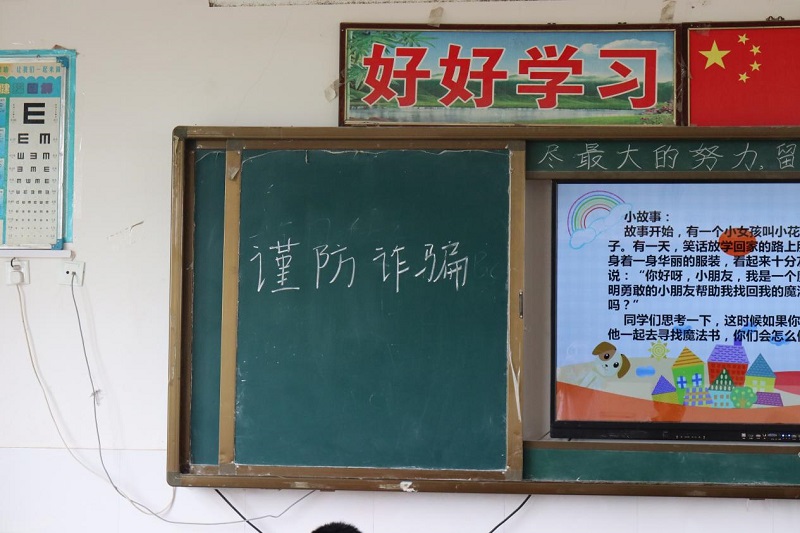 好好学习
尽最大的努力,留
谨防诈骗
小故事：
故事开始，有一个小女孩叫小花
子。有一天，笑话放学回家的路上
身着一身华丽的服装，看起来十分
说：“你好呀，小朋友，我是一个
明勇敢的小朋友帮助我找回我的魔法
吗？”
同学们思考一下，这时候如果你
他一起去寻找魔法书，你们会怎么